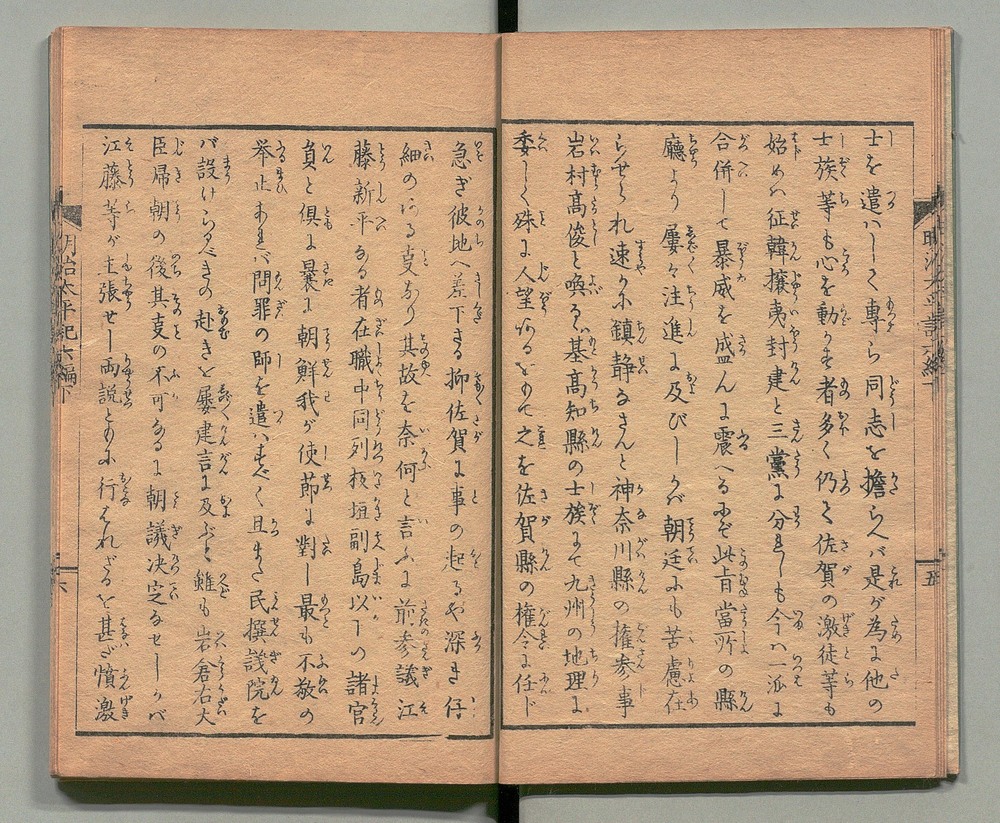 士を遣ハして專ら同志を擔らへバ是が為に他の
士族等も心を動かす者多く仍て佐賀の激徒等も
始めハ征韓攘夷封建と三黨に分れしも今ハ一派に
合併して暴威を盛んに震へるにぞ此旨當所の縣
廳より屢々注進に及びしかバ朝廷にも苦慮在
らせられ速かに鎮静なさんと神奈川縣の権参事
岩村髙俊と喚るゝ基髙知縣の士族にて九州の地理に
委しく殊に人望あるをもて之を佐賀縣の権令に任ド
急ぎ彼地へ差下さる抑佐賀に事の起るや深き仔
細のある㕝なり其故を奈何と言ふに前参議江
藤新平なる者在職中同列板垣副島以下の諸官
員と倶に曩に朝鮮我が使節に對し最も不敬の
挙止あれバ問罪の師を遣ハすべく且また民撰議院を
バ設けらるべきの赴きを屢建言に及ぶと雖も岩倉右大
臣帰朝の後其㕝の不可なるに朝議决定なせしかバ
江藤等が主張せし両説ともに行はれざるを甚だ憤激
明治太平記六編下
五
明治太平記六編下
六